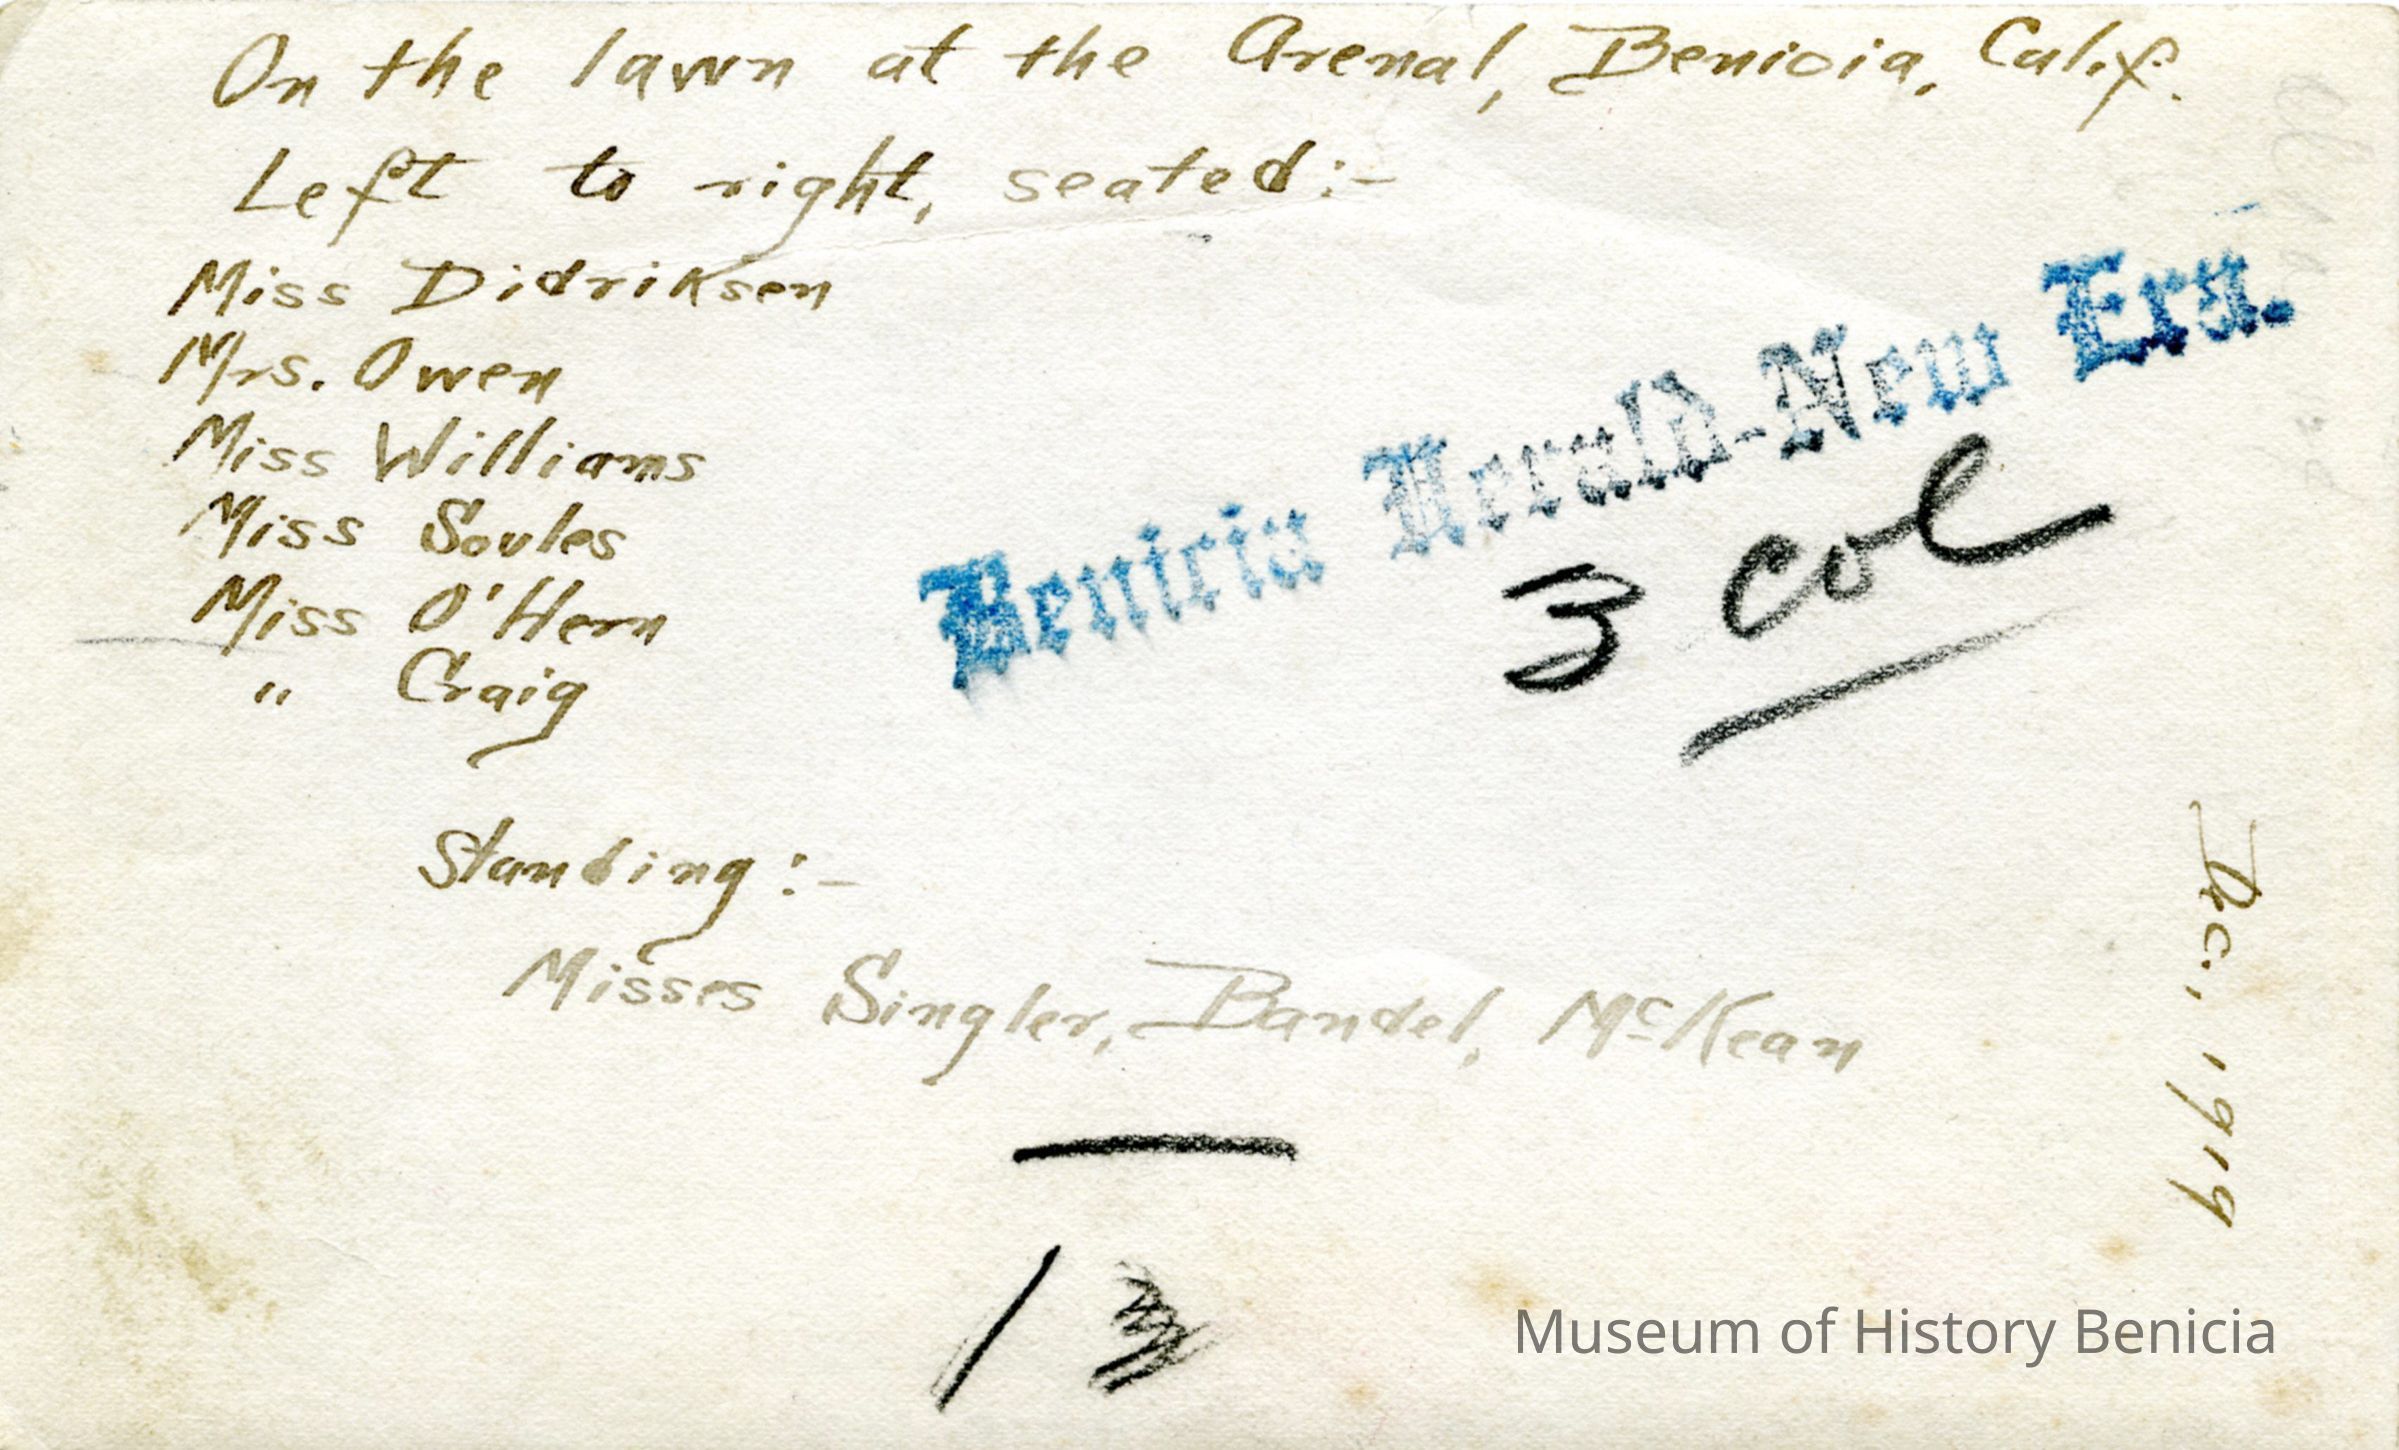 On the lawn at the Arenal, Benicia, Calif.
Left to right, seated:-
Miss Didriksen
Mrs. Owen
Miss Williams
Miss Soules
Miss O'Hern
" Craig
Benicia Herald-New Era.
3 col
Standing:-
Misses Singler, Bandel, McKean
Dec., 1919
1
Museum of History Benicia